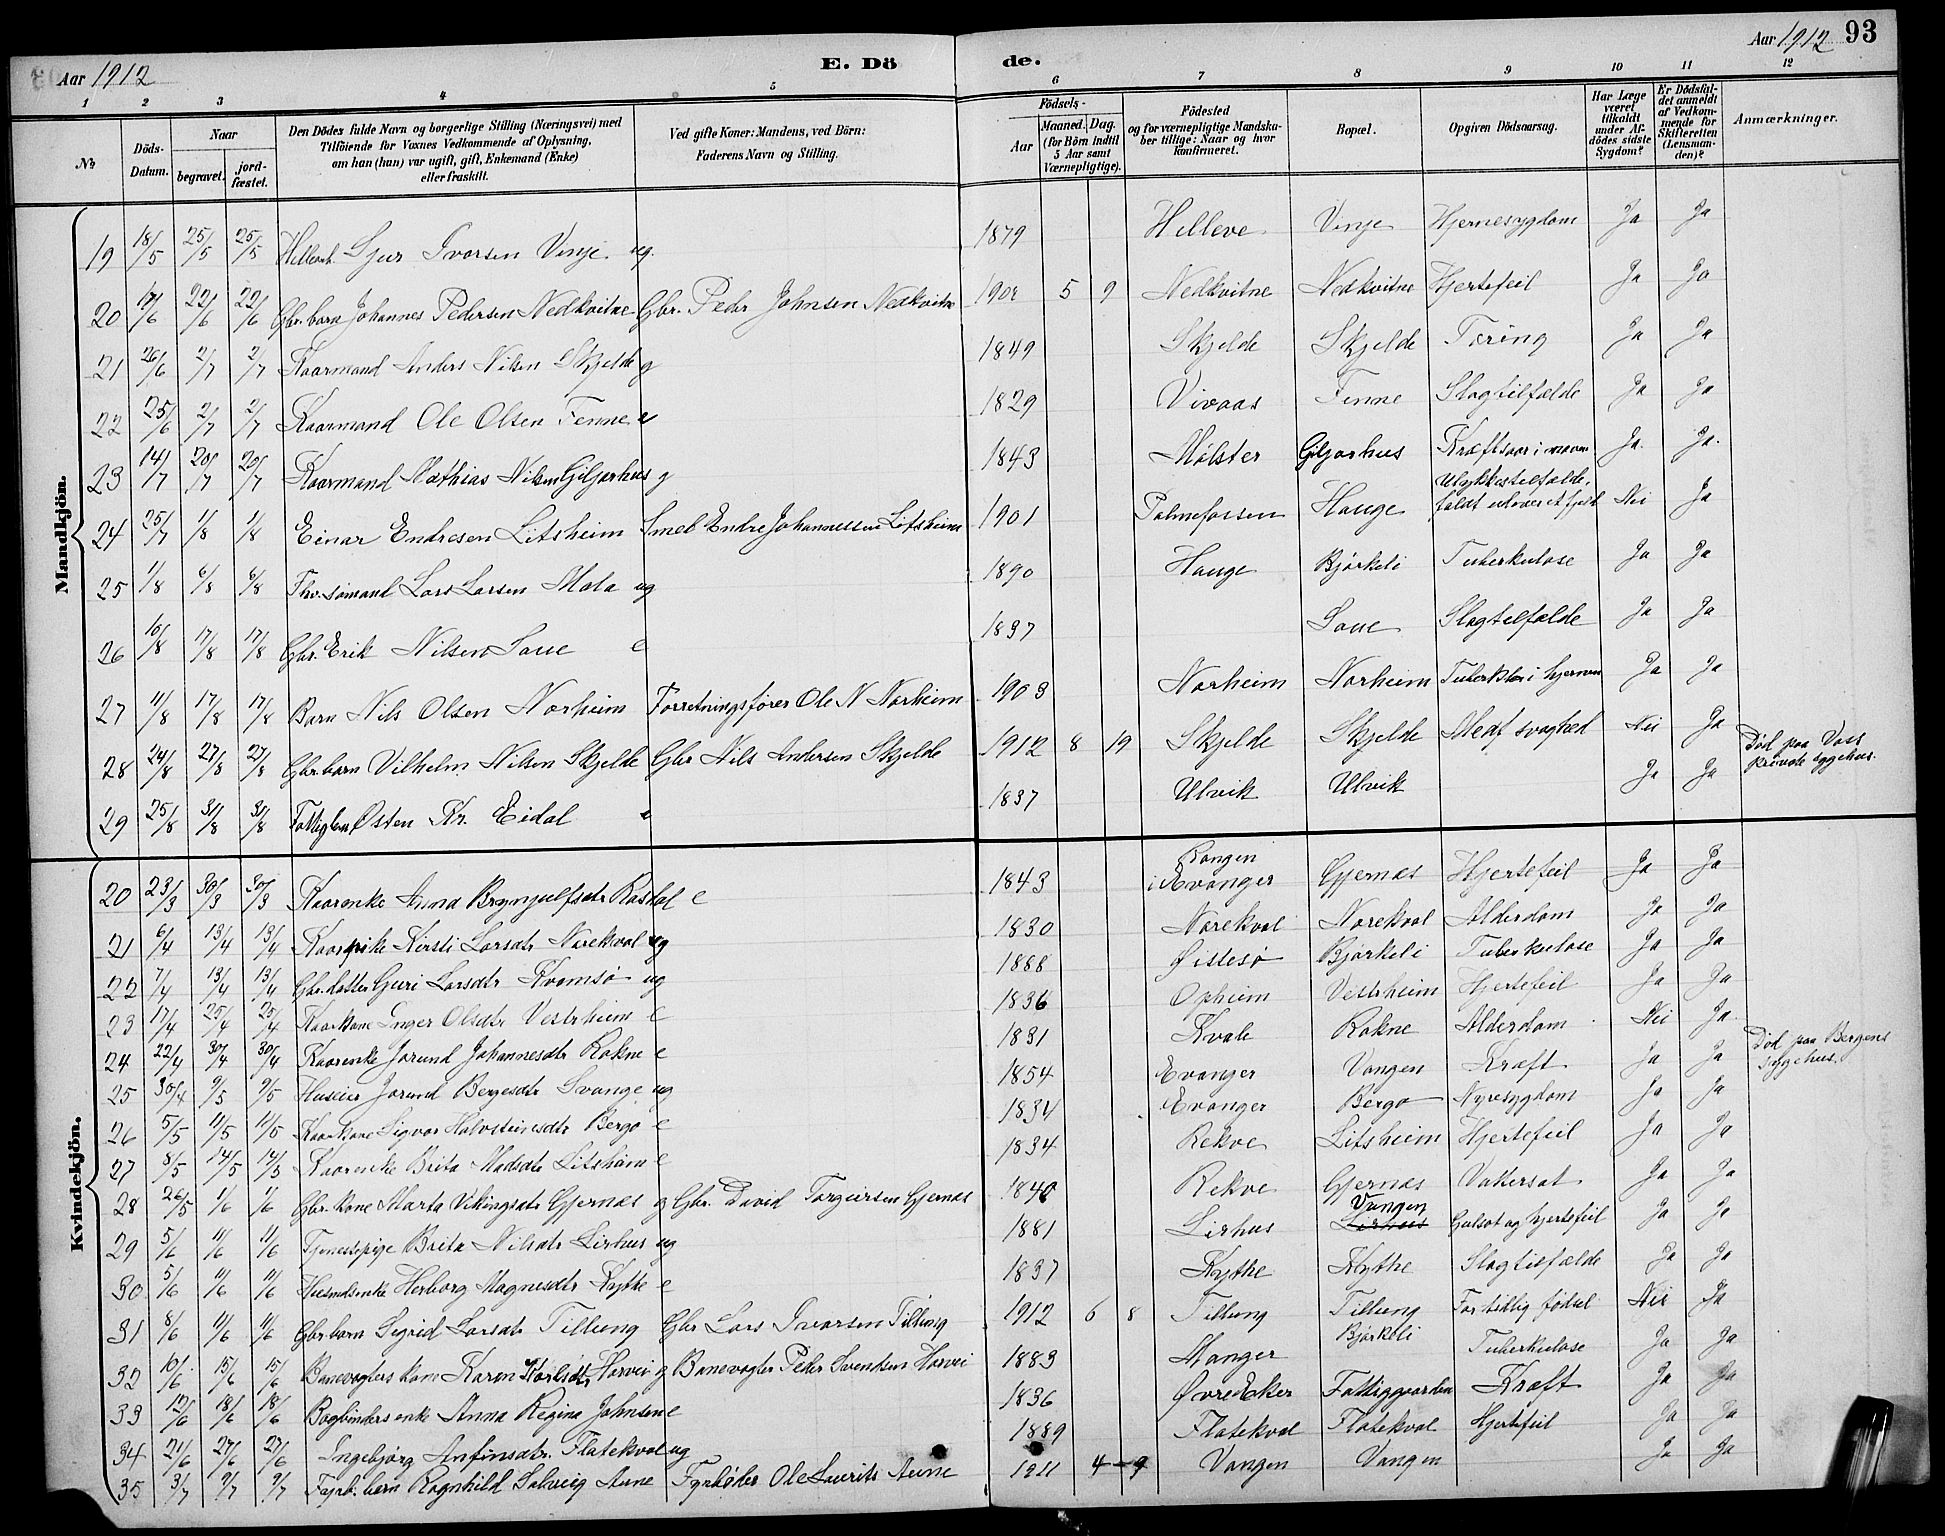 Aar 1912
E. Dö
de.
Aar 1912
93
1 2 3 4 5 6 7 8 9 10 11 12
№
Döds-Datum.
Naar
begravet.
jordfæstet.
Den Dödes fulde Navn og borgerlige Stilling (Næringsvei) med
Tilföiende for Voxnes Vedkommende af Oplysning,
om han (hun) var ugift, gift, Enkemand (Enke)
eller fraskilt.
Ved gifte Koner: Mandens, ved Börn:
Faderens Navn og Stilling.
Födsels-
Aar
Maaned. Dag.
(for Börn indtil
5 Aar samt
Værnepligtige).
Födested
og for værnepligtige Mandska-
ber tillige: Naar og hvor
konfirmeret.
Bopæl.
Opgiven Dödsaarsag.
Har Læge
været
tilkaldt
under Af-
dödes sidste
Sygdom?
Er Dödsfal-
det anmeldt
af Vedkom-
mende for
Skifteretten
(Lensman-
den)?
Anmærkninger.
Mandkjön.
19 18/5 25/5 25/5 Sjur Ivarsen Vinje ug. 1879 Helleve Vinje Hjernesygdom Ja Ja
20 17/6 22/6 22/6 Gbr. barn Johannes Pedersen Nedkvitne Gbr. Peder Johnsen Nedkvitne 5 9 Nedkvitne Nedkvitne Hjertefeil Ja Ja
21 26/6 2/7 2/7 Kaarmand Anders Nilsen Skjelde g 1849 Skjelde Skjelde Tæring Ja Ja
22 25/6 2/7 2/7 Kaarmand Ole Olsen Finne e 1829 Vivaas Finne Slagtilfælde Ja Ja
23 14/7 20/7 20/7 Kaarmand Mathias Nilsen Giljarhus g 1843 Mølster Giljarhus Kræftsaar i maven Ja Ja.
24 25/7 1/8 1/8 Einar Endresen Litsheim Smed Endre Johannessen Litsheim 1901 Palmefossen Hauge Ulykkestilfælde, faldt utover et fjeld Nei Ja
25 1/8 6/8 6/8 Fhv. sømand Lars Larsen Mala ug 1890 Hauge Bjørkeli Tuberkulose Ja Ja
26 10/8 17/8 17/8 Gbr. Erik Nilsen Saue e 1837 Saue Slagtilfælde Ja Ja
27 11/8 17/8 17/8 Barn Nils Olsen Norheim Forretningsfører Ole N Norheim 1903 Norheim Norheim Tuberkler i hjernen Ja Ja
28 24/8 27/8 27/8 Gbr. barn Vilhelm Nilsen Skjelde Gbr Nils Andersen Skjelde 1912 8 19 Skjelde Skjelde Medf svaghed Nei Ja
29 25/8 31/8 31/8 Fattiglem Østen Kr. Eidal e 1837 Ulvik Ulvik Ja Ja Død paa Voss private sygehus.
Kvindekjön.
20 23/3 30/3 30/3 Kaarenke Anna Brynjulfsdtr Rastal e 1843 Rangen i Evanger Gjernes Hjertefeil Ja Ja
21 6/4 13/4 13/4 Kaarpike Kirsti Larsdtr Norekval ug 1830 Norekval Norekval Alderdom Ja Ja
22 7/4 13/4 13/4 Gbr. datter Guri Larsdtr Kvamsø ug 1888 Øistesø Bjørkeli Tuberkulose Ja Ja
23 17/4 25/4 25/4 Kaarkone Inger Olsdtr Vestrheim e 1836 Opheim Vestrheim Hjertefeil Ja Ja
24 22/4 30/4 30/4 Kaarenke Jorund Johannesdtr Rokne e 1831 Kvale Rokne Alderdom Nei Ja
25 30/4 9/5 9/5 Huseier Jorund Bergesdtr Svange ug 1854 Evanger Vangen Kræft Ja Ja Død paa Bergens sygehus.
26 5/5 11/5 11/5 Kaarkone Sigvor Halvsteinsdtr Bergo e 1834 Evanger Bergo Nyresygdom Ja Ja
27 8/5 14/5 14/5 Kaarenke Brita Madsdtr Litsheim e 1834 Rekve Litsheim Hjertefeil Ja Ja
28 26/5 1/6 1/6 Gbr. kone Marta Vikingsdtr Gjernes g Gbr. David Torgiersen Gjernes 1840 Rekve Gjernes Vattersot Ja Ja
29 5/6 11/6 11/6 Tjenestepige Brita Nilsdtr Lirhus ug 1881 Lirhus Vangen Lirhus Gulsot og hjertefeil Ja Ja
30 5/6 11/6 11/6 Husmdsenke Herborg Magnesdtr Kythe e 1837 Kythe Kythe Slagtilfælde Ja Ja
31 8/6 11/6 11/6 Gbr barn Sigrid Larsdtr Tillung Gbr Lars Ivarsen Tillung 1912 6 8 Tillung Tillung For tidlig fødsel Nei Ja
32 10/6 15/6 15/6 Banevogters kone Karen Karlsdtr Horvei g Banevogter Peder Svendsen Horvei 1883 Manger Bjørkeli Tuberkulose Ja Ja
33 12/6 18/6 18/6 Bogbinders enke Anna Regina Johnsen e 1836 Øvre Eker Fattiggaarden Kræft Ja Ja
34 21/6 27/6 27/6 Ingebjørg Anfinsdtr. Flatekval ug 1889 Flatekval Flatekval Hjertefeil Ja Ja
35 3/7 9/7 9/7 Fyrb. barn Ragnhild Solveig Aune Fyrbøder Ole Laurits Aune 1911 4 - 9 Vangen Vangen Ja Ja